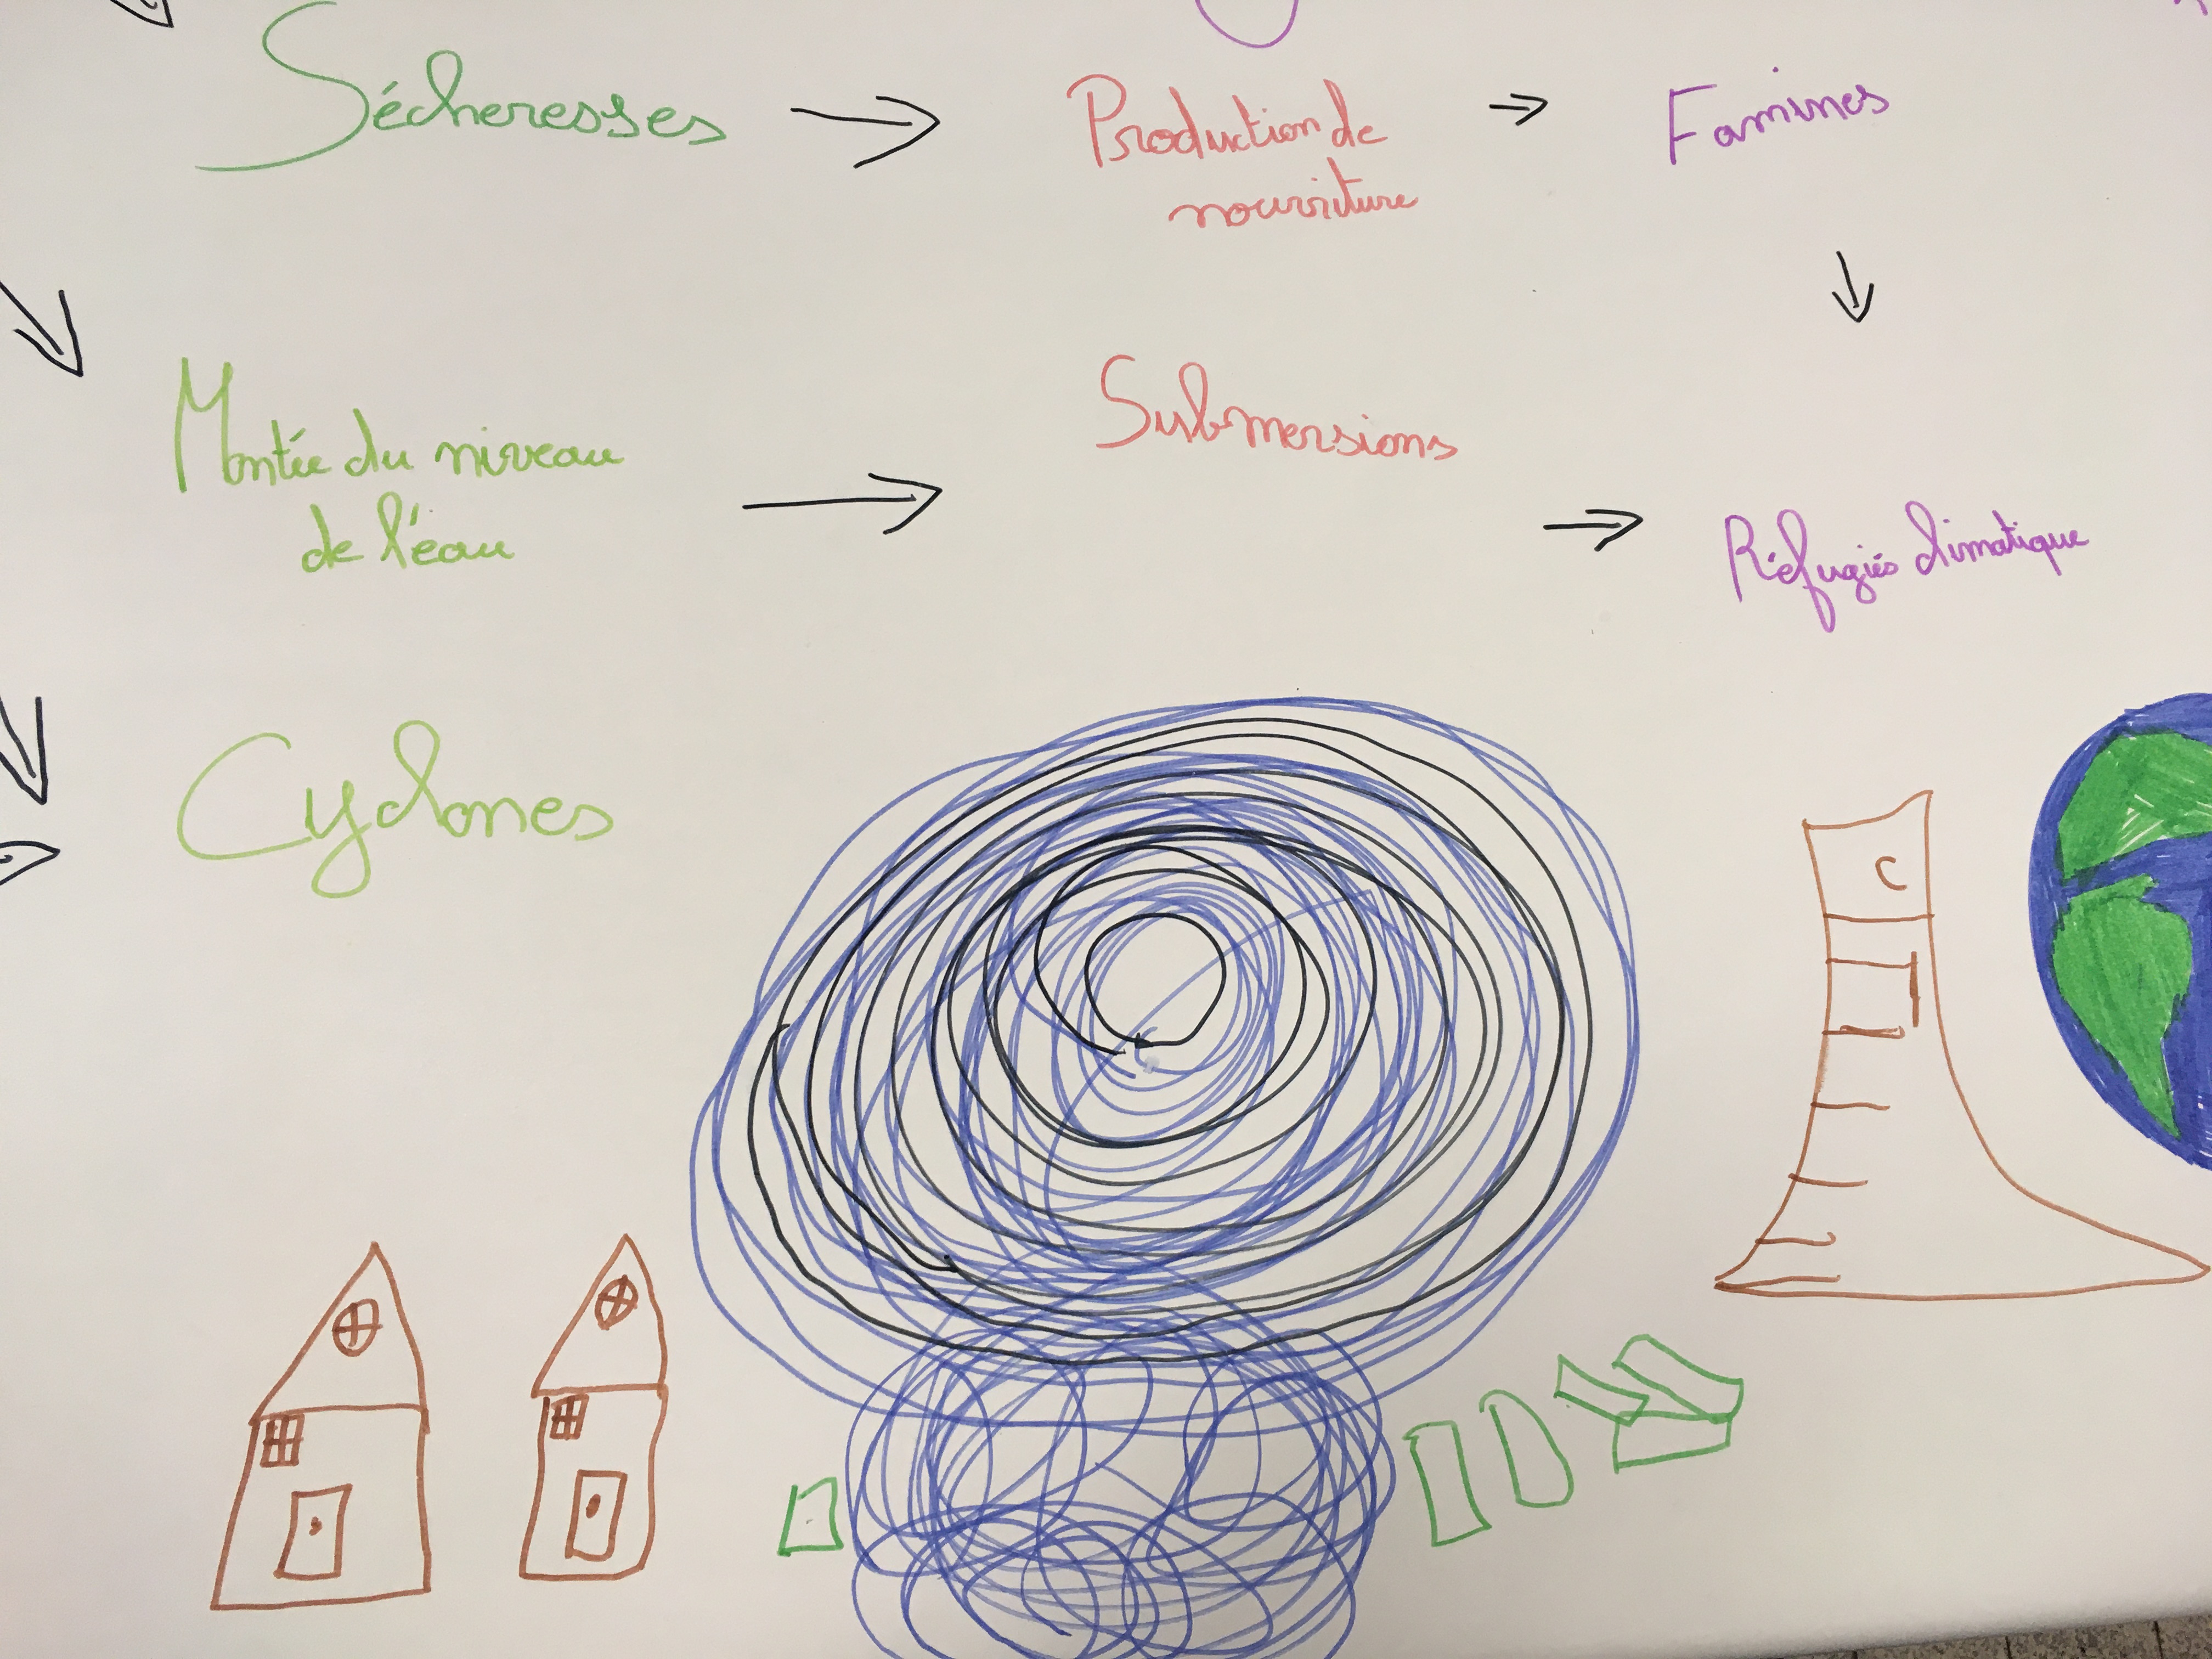 Sécheresses
Production de
nourriture
Famines
Montée du niveau
de l'eau
Submersions
Réfugiés climatique
Cyclones
C